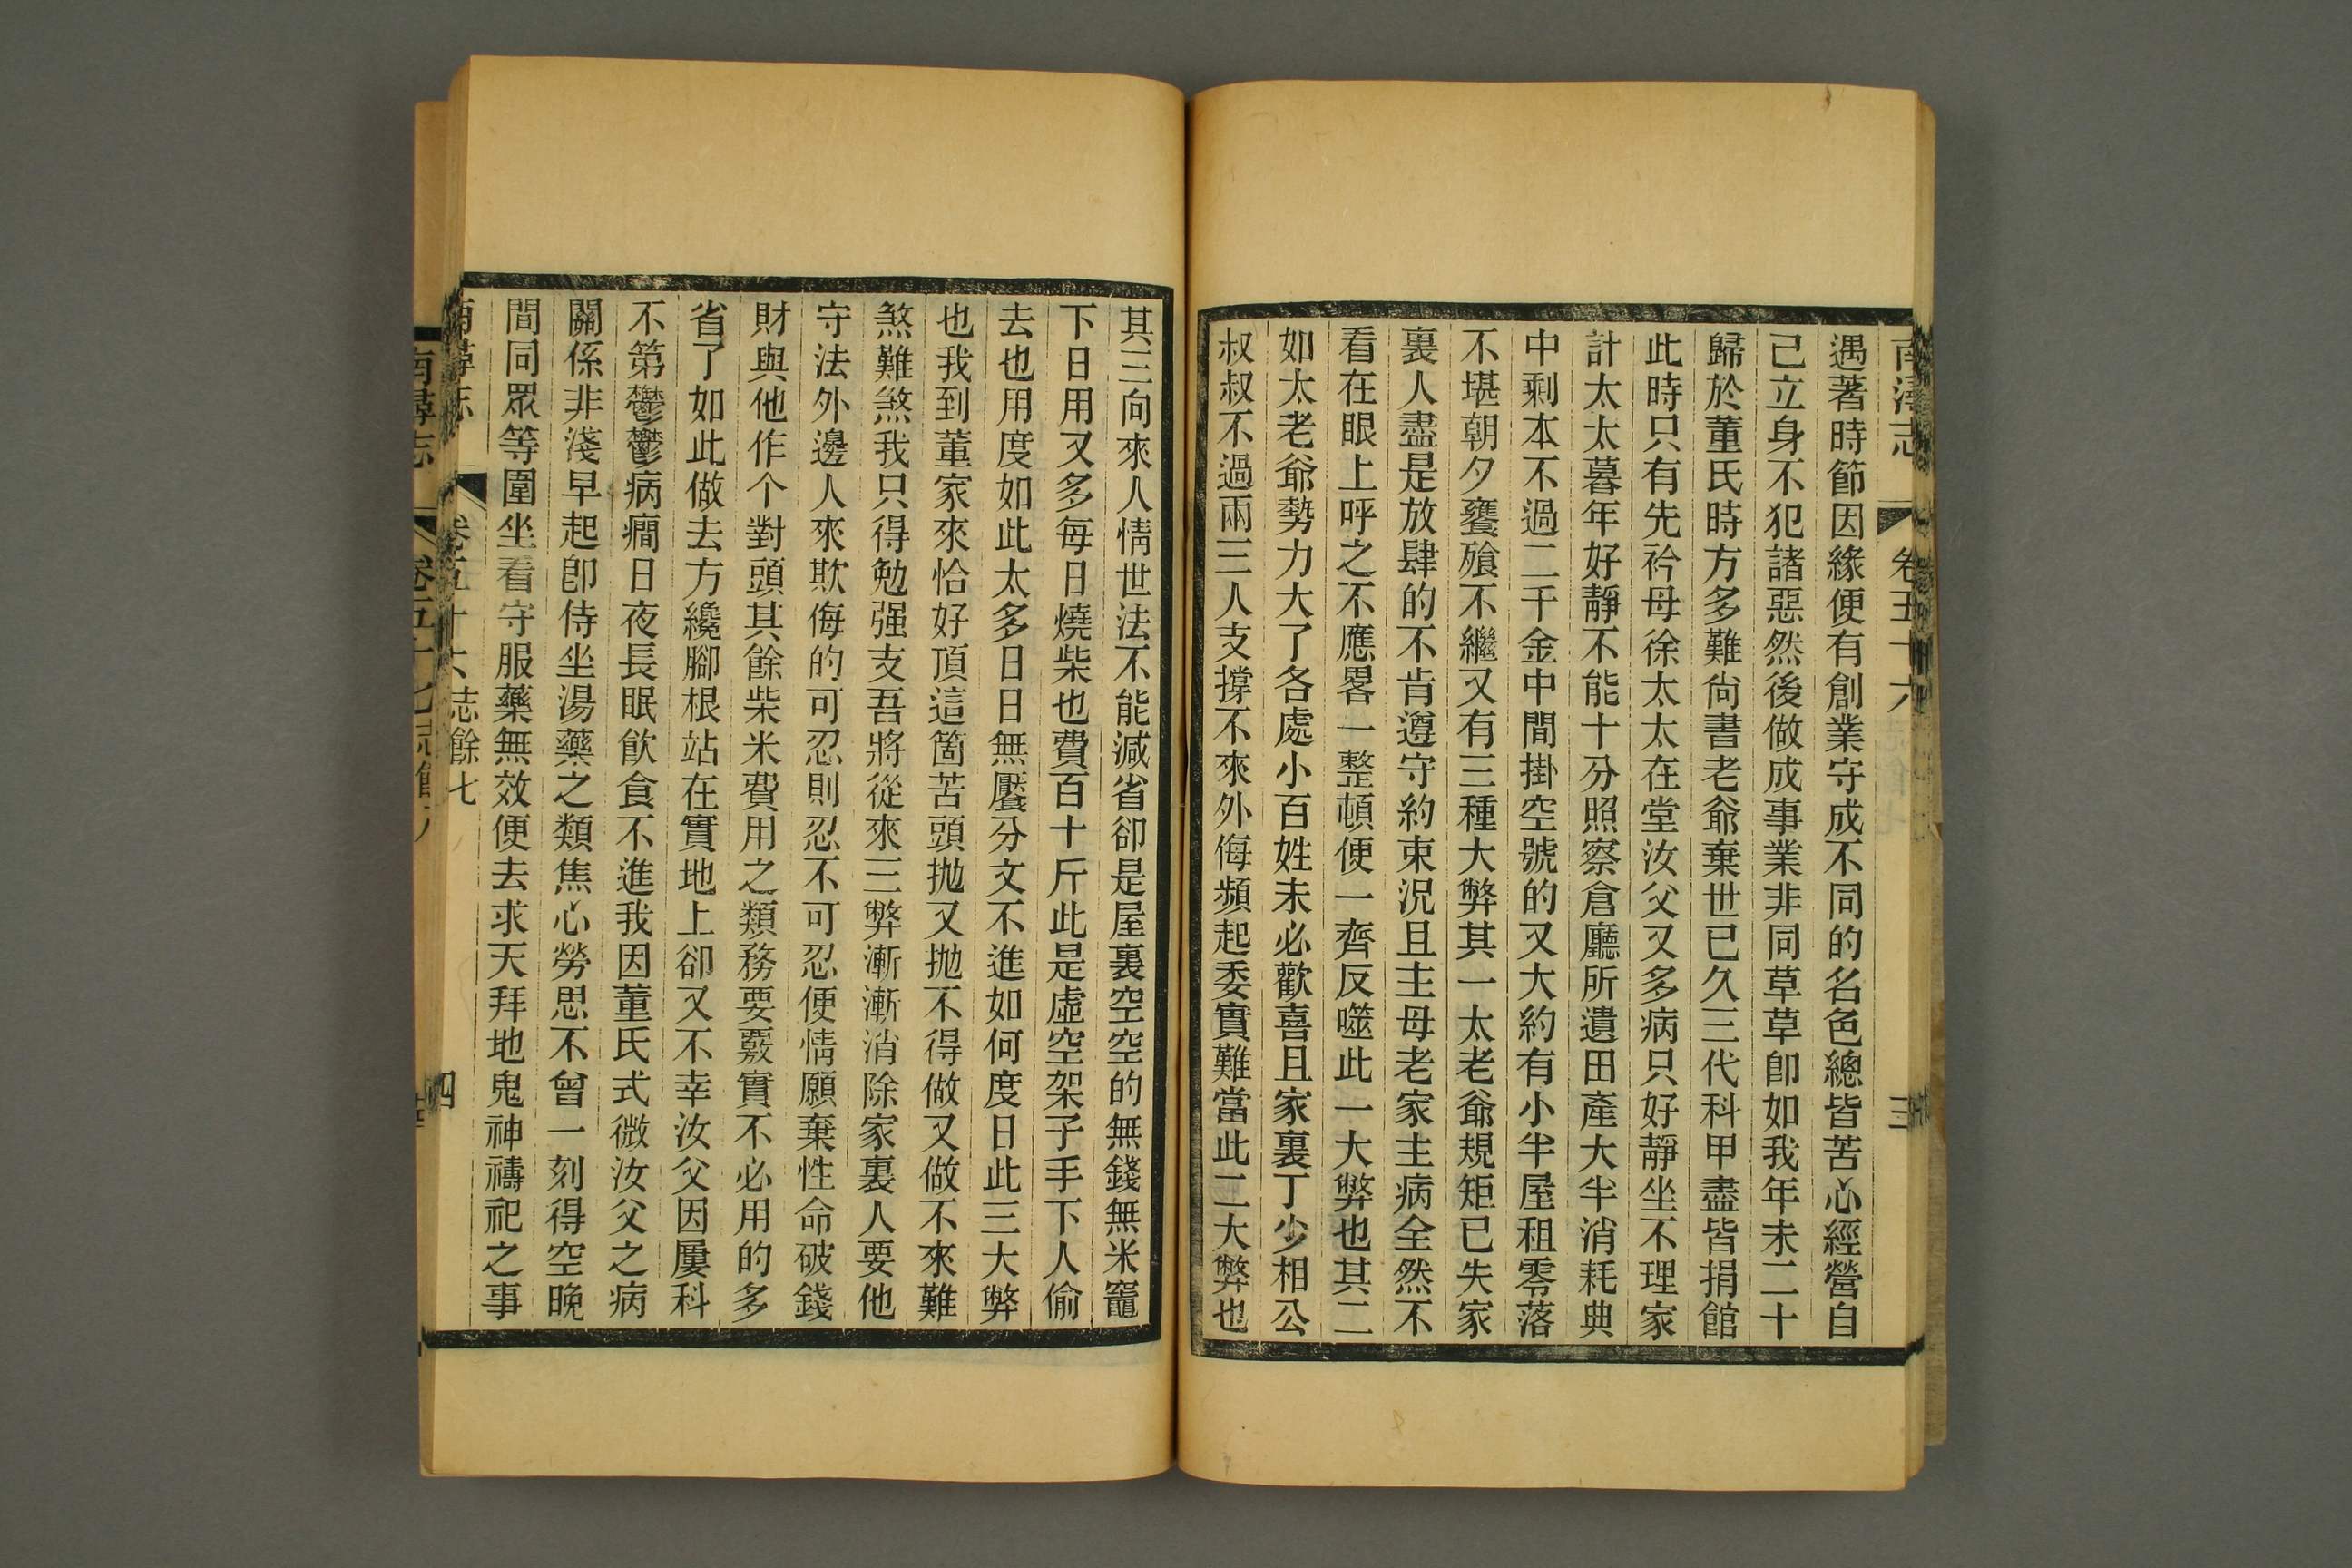 南潯志 卷五十六 三
遇著時節因緣便有創業守成不同的名色總皆苦心經營自
己立身不犯諸惡然後做成事業非同草草卽如我年未二十
歸於董氏時方多難尙書老爺棄世已久三代科甲盡皆捐館
此時只有先衿母徐太太在堂汝父又多病只好靜坐不理家
計太太暮年好靜不能十分照察倉廳所遺田產大半消耗典
中剩本不過二千金中間掛空號的又大約有小半屋租零落
不堪朝夕饔飱不繼又有三種大弊其一太老爺規矩已失家
裏人盡是放肆的不肯遵守約束況且主母老家主病全然不
看在眼上呼之不應畧一整頓便一齊反噬此一大弊也其二
如太老爺勢力大了各處小百姓未必歡喜且家裏丁少相公
叔叔不過兩三人支撐不來外侮頻起委實難當此二大弊也
其三向來人情世法不能減省卻是屋裏空空的無錢無米竈
下日用又多每日燒柴也費百十斤此是虛空架子手下人偷
去也用度如此太多日日無饜分文不進如何度日此三大弊
也我到董家來恰好頂這箇苦頭拋又拋不得做又做不來難
煞難煞我只得勉强支吾將從來三弊漸漸消除家裏人要他
守法外邊人來欺侮的可忍則忍不可忍便情願棄性命破錢
財與他作个對頭其餘柴米費用之類務要覈實不必用的多
省了如此做去方纔腳根站在實地上卻又不幸汝父因屢科
不第鬱鬱病癎日夜長眠飮食不進我因董氏式微汝父之病
關係非淺早起卽侍坐湯藥之類焦心勞思不曾一刻得空晚
間同眾等圍坐看守服藥無效便去求天拜地鬼神禱祀之事
南潯志 卷五十六 志餘七 四
南潯志 卷五十七 志餘八